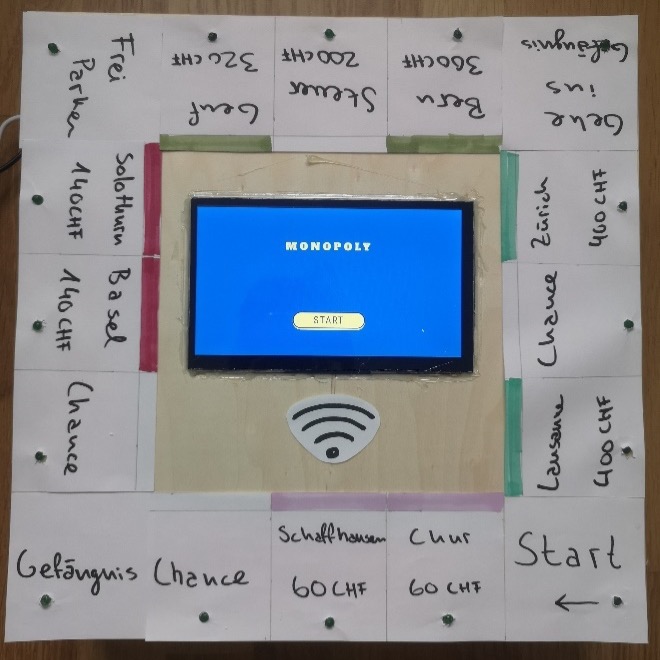 Frei
Parken
Genf
320CHF
Steuer
200CHF
Bern
300CHF
Gehe
ins
Gefängnis
Solothurn
140CHF
Basel
140CHF
Chance
MONOPOLY
START
Zürich
400 CHF
Chance
Lausanne
400 CHF
Gefängnis
Chance
Schaffhausen
60 CHF
Chur
60 CHF
Start
←